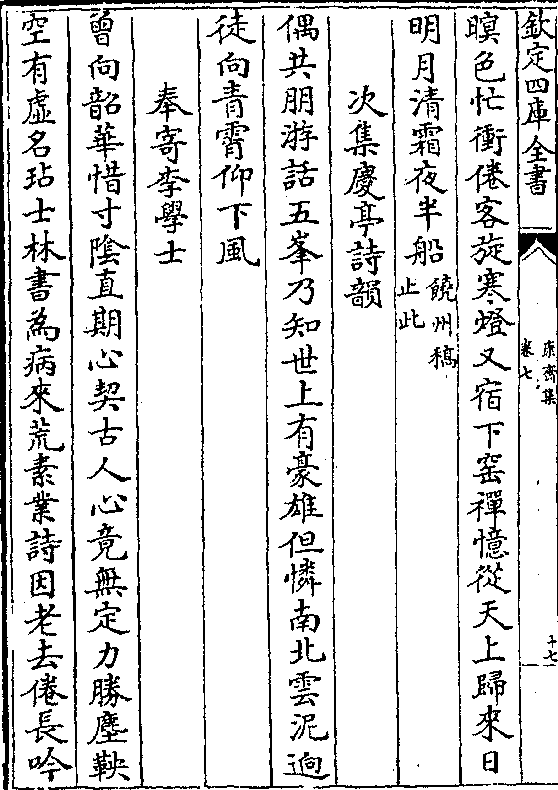 欽定四庫全書
康齋集
卷七
十七
暝色忙衝倦客旋寒燈又宿下窑禪憶從天上歸來日
明月清霜夜半船饒州稿止此
次集慶亭詩韻
偶共朋游話五峯乃知世上有豪雄但憐南北雲泥逈
徒向青霄仰下風
奉寄李學士
曾向韶華惜寸陰直期心契古人心竟無定力勝塵鞅
空有虛名玷士林書為病來荒素業詩因老去倦長吟